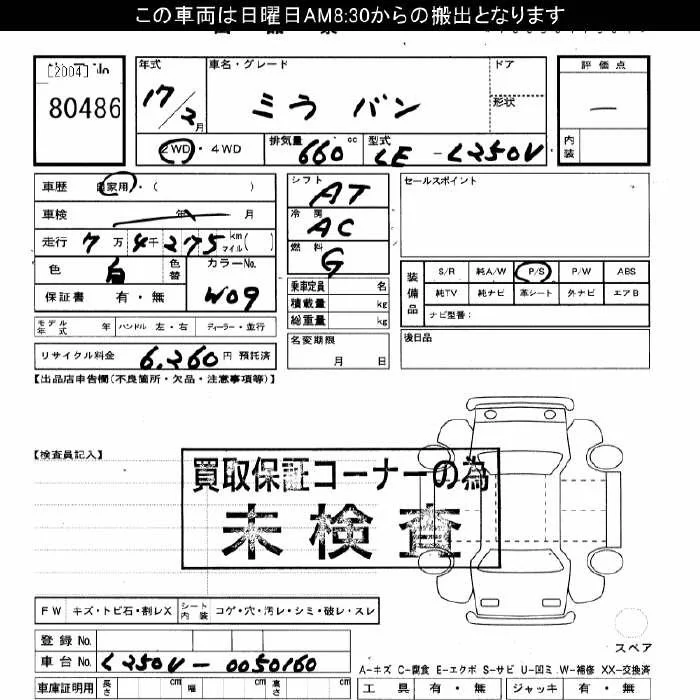 この車両は日曜日AM8:30からの搬出となります
[2004]
80486
年式
17/2月
車名・グレード
ミラ バン
ドア
形状
評価点
—
内装
2WD・4WD
排気量 660 cc
型式 LE-L250V
車歴 自家用・( )
車検 年 月
走行 7万4千275 km マイル( )
色 白 色替
カラーNo. W09
保証書 有・無
シフト AT
冷房 AC
燃料 G
乗車定員 名
積載量 kg
総重量 kg
セールスポイント
装備品
S/R 純A/W P/S P/W ABS
純TV 純ナビ 革シート 外ナビ エアB
ナビ型番:
モデル年式 年 ハンドル 左・右 ディーラー・並行
リサイクル料金 6,260 円 預託済
名変期限 月 日
後日品
【出品店申告欄(不良箇所・欠品・注意事項等)】
【検査員記入】
買取保証コーナーの為
未検査
FW キズ・トビ石・割レX シート内装 コゲ・穴・汚レ・シミ・破レ・スレ
登録No.
車台No. L250V-0050160
スペア
A-キズ C-腐食 E-エクボ S-サビ U-凹ミ W-補修 XX-交換済
車庫証明用 長さ cm 幅 cm 高さ cm
工具 有・無 ジャッキ 有・無